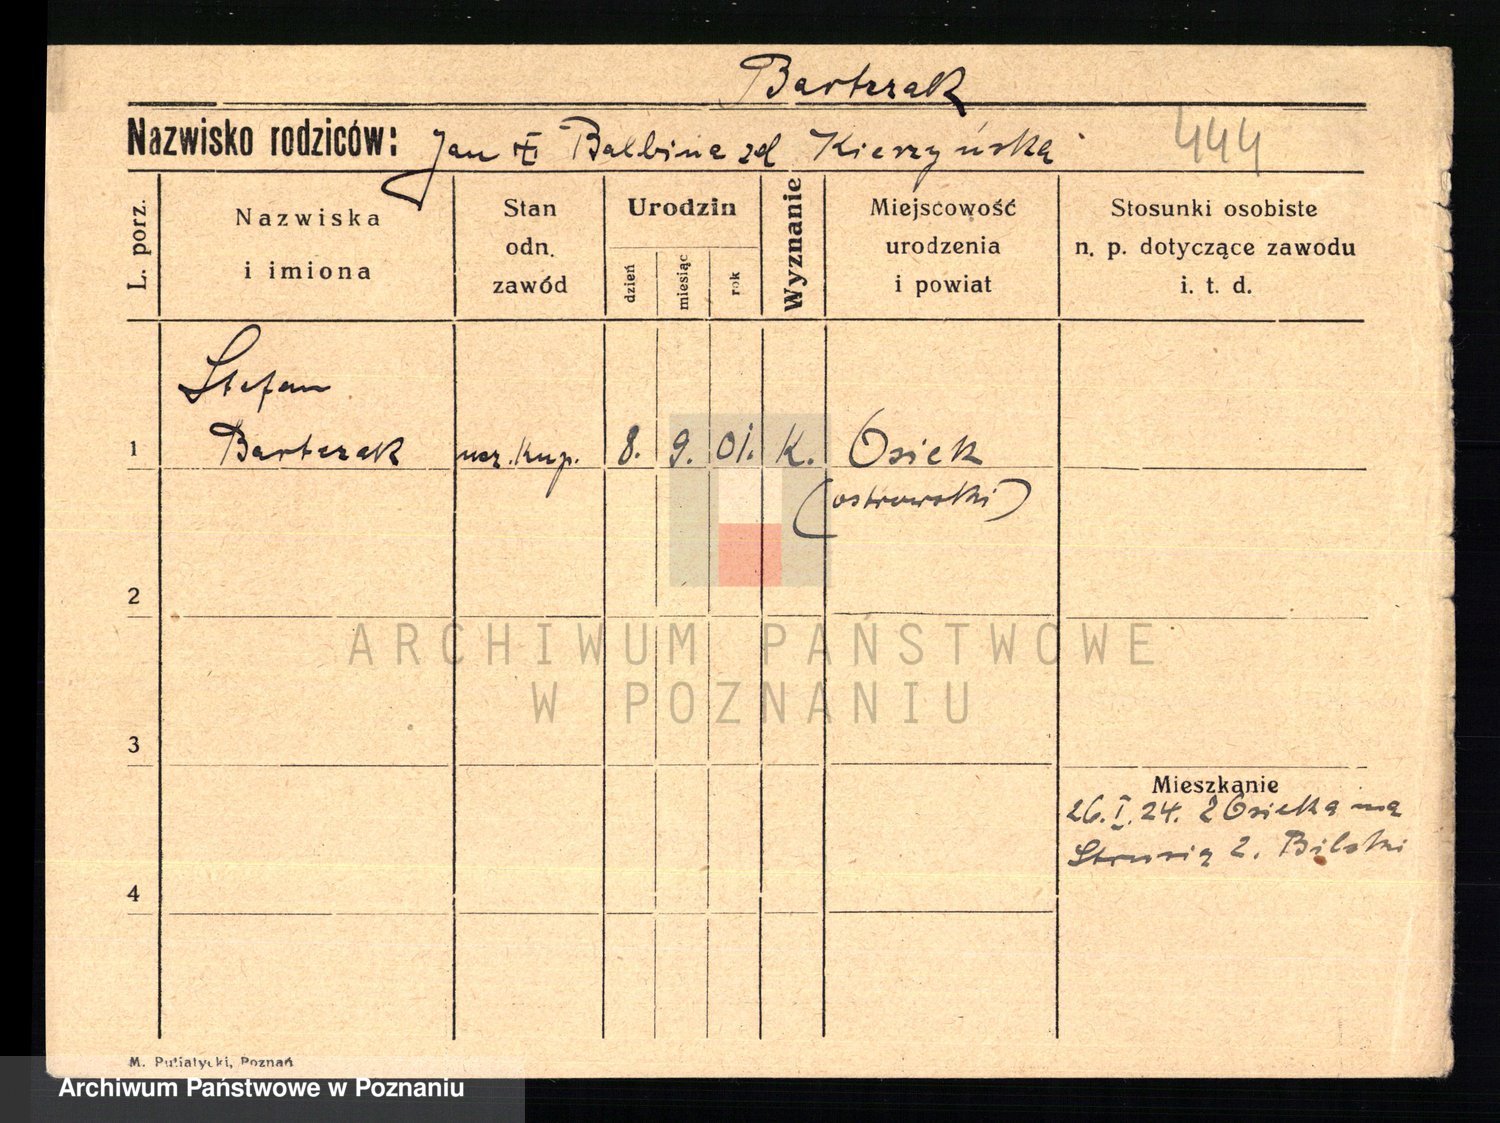 Bartrzak
Nazwisko rodziców: Jan Balbina zd Kierzyńska 444
L. porz.
Nazwiska
i imiona
Stan
odn.
zawód
Urodzin
dzień
miesiąc
rok
Wyznanie
Miejscowość
urodzenia
i powiat
Stosunki osobiste
n. p. dotyczące zawodu
i. t. d.
Stefan
1 Bartrzak ucz. kup. 8. 9. 01. K. Osiek
(ostrowski)
2
ARCHIWUM PAŃSTWOWE
W POZNANIU
3
Mieszkanie
26. I. 24. z Osieka na
Strusią 2. Bilski
4
M. Putiatycki, Poznań
Archiwum Państwowe w Poznaniu